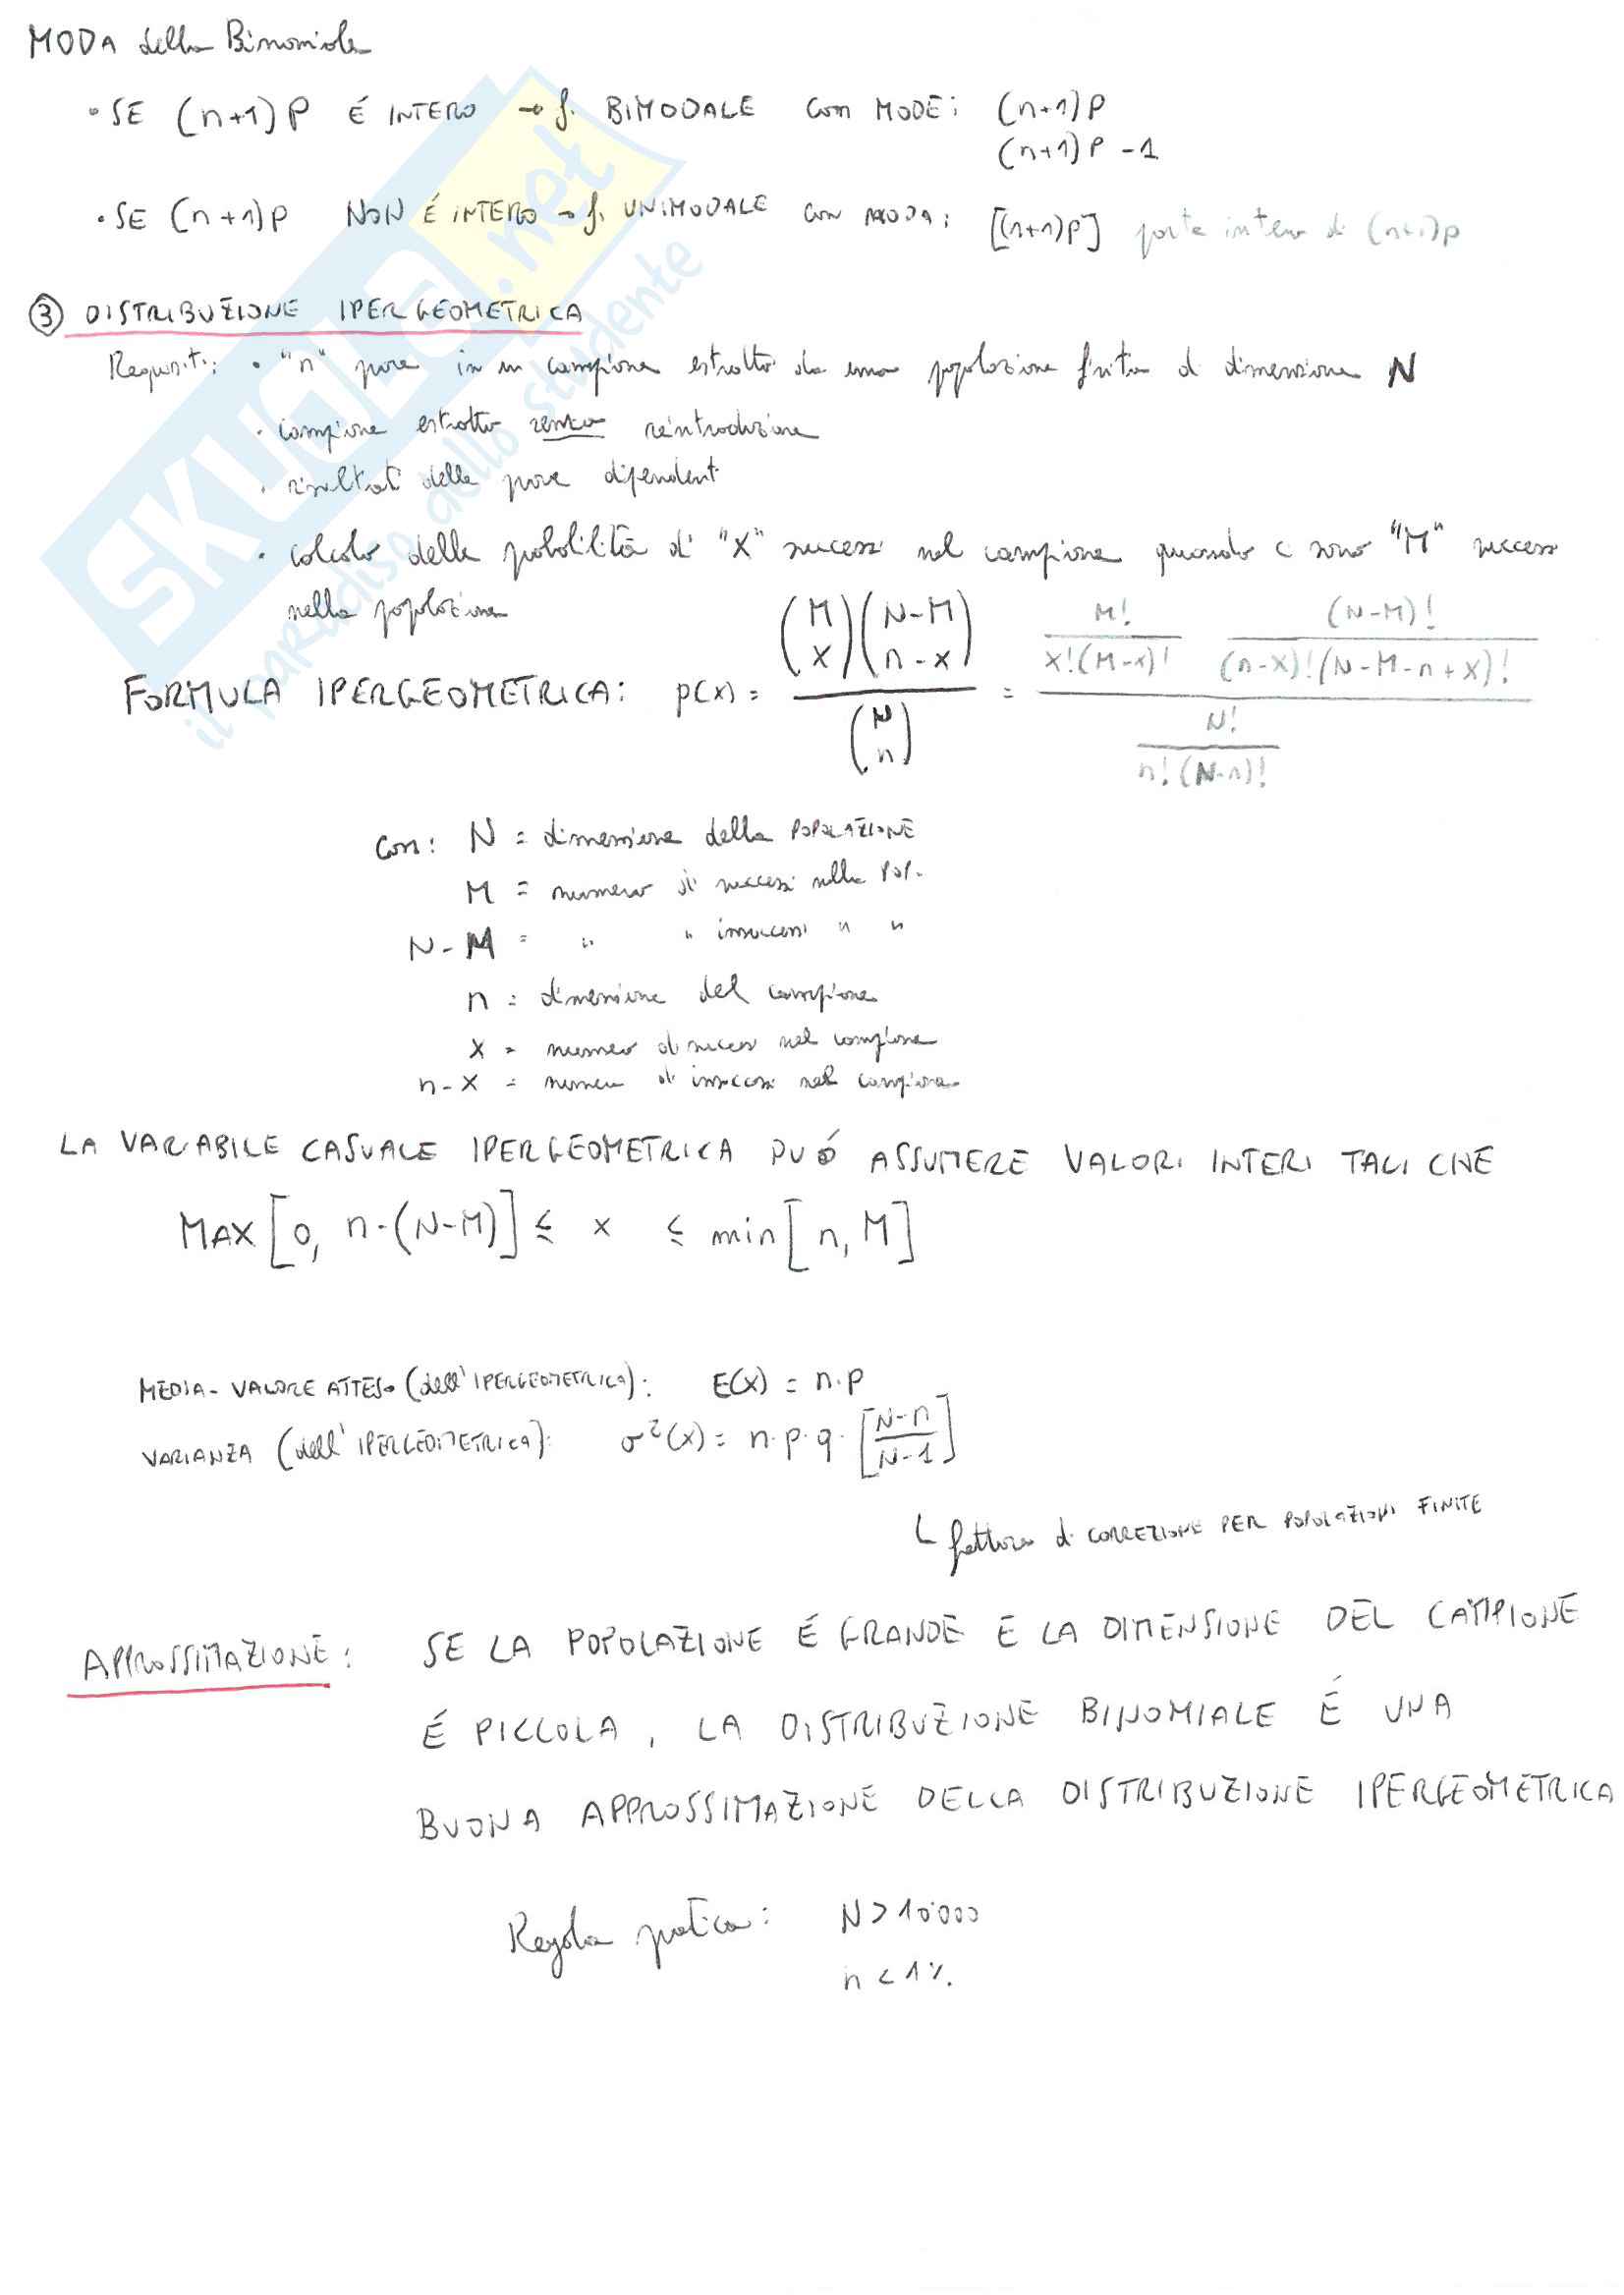 MODA della Binomiale
• SE (n+1)P É INTERO → f. BIMODALE con MODE: (n+1)P
(n+1)P -1
• SE (n+1)P NON É INTERO → f. UNIMODALE con MODA: [(n+1)P] parte intera di (n+1)p
③ DISTRIBUZIONE IPERGEOMETRICA
Requisiti: • "n" prove in un campione estratto da una popolazione finita di dimensione N
• campione estratto senza reintroduzione
• risultati delle prove dipendenti
• calcolo delle probabilità di "X" successi nel campione quando ci sono "M" successi
nella popolazione
FORMULA IPERGEOMETRICA: P(x) = (M X)(N-M n-x) / (N n) = M!/(x!(M-x)!) (N-M)!/((n-x)!(N-M-n+x)!) / N!/(n!(N-n)!)
con: N = dimensione della POPOLAZIONE
M = numero di successi nella POP.
N-M = " " insuccessi " "
n = dimensione del campione
X = numero di successi nel campione
n-X = numero di insuccessi nel campione
LA VARIABILE CASUALE IPERGEOMETRICA PUÓ ASSUMERE VALORI INTERI TALI CHE
MAX[0, n-(N-M)] ≤ x ≤ min[n, M]
MEDIA-VALORE ATTESO (dell'IPERGEOMETRICA): E(X) = n·P
VARIANZA (dell'IPERGEOMETRICA): σ²(x) = n·p·q·[N-n/N-1]
↳ fattore di CORREZIONE PER POPOLAZIONI FINITE
APPROSSIMAZIONE: SE LA POPOLAZIONE É GRANDE E LA DIMENSIONE DEL CAMPIONE
É PICCOLA, LA DISTRIBUZIONE BINOMIALE É UNA
BUONA APPROSSIMAZIONE DELLA DISTRIBUZIONE IPERGEOMETRICA
Regola pratica: N > 10000
n < 1%.
SKUOLA.net
il paradiso dello studente